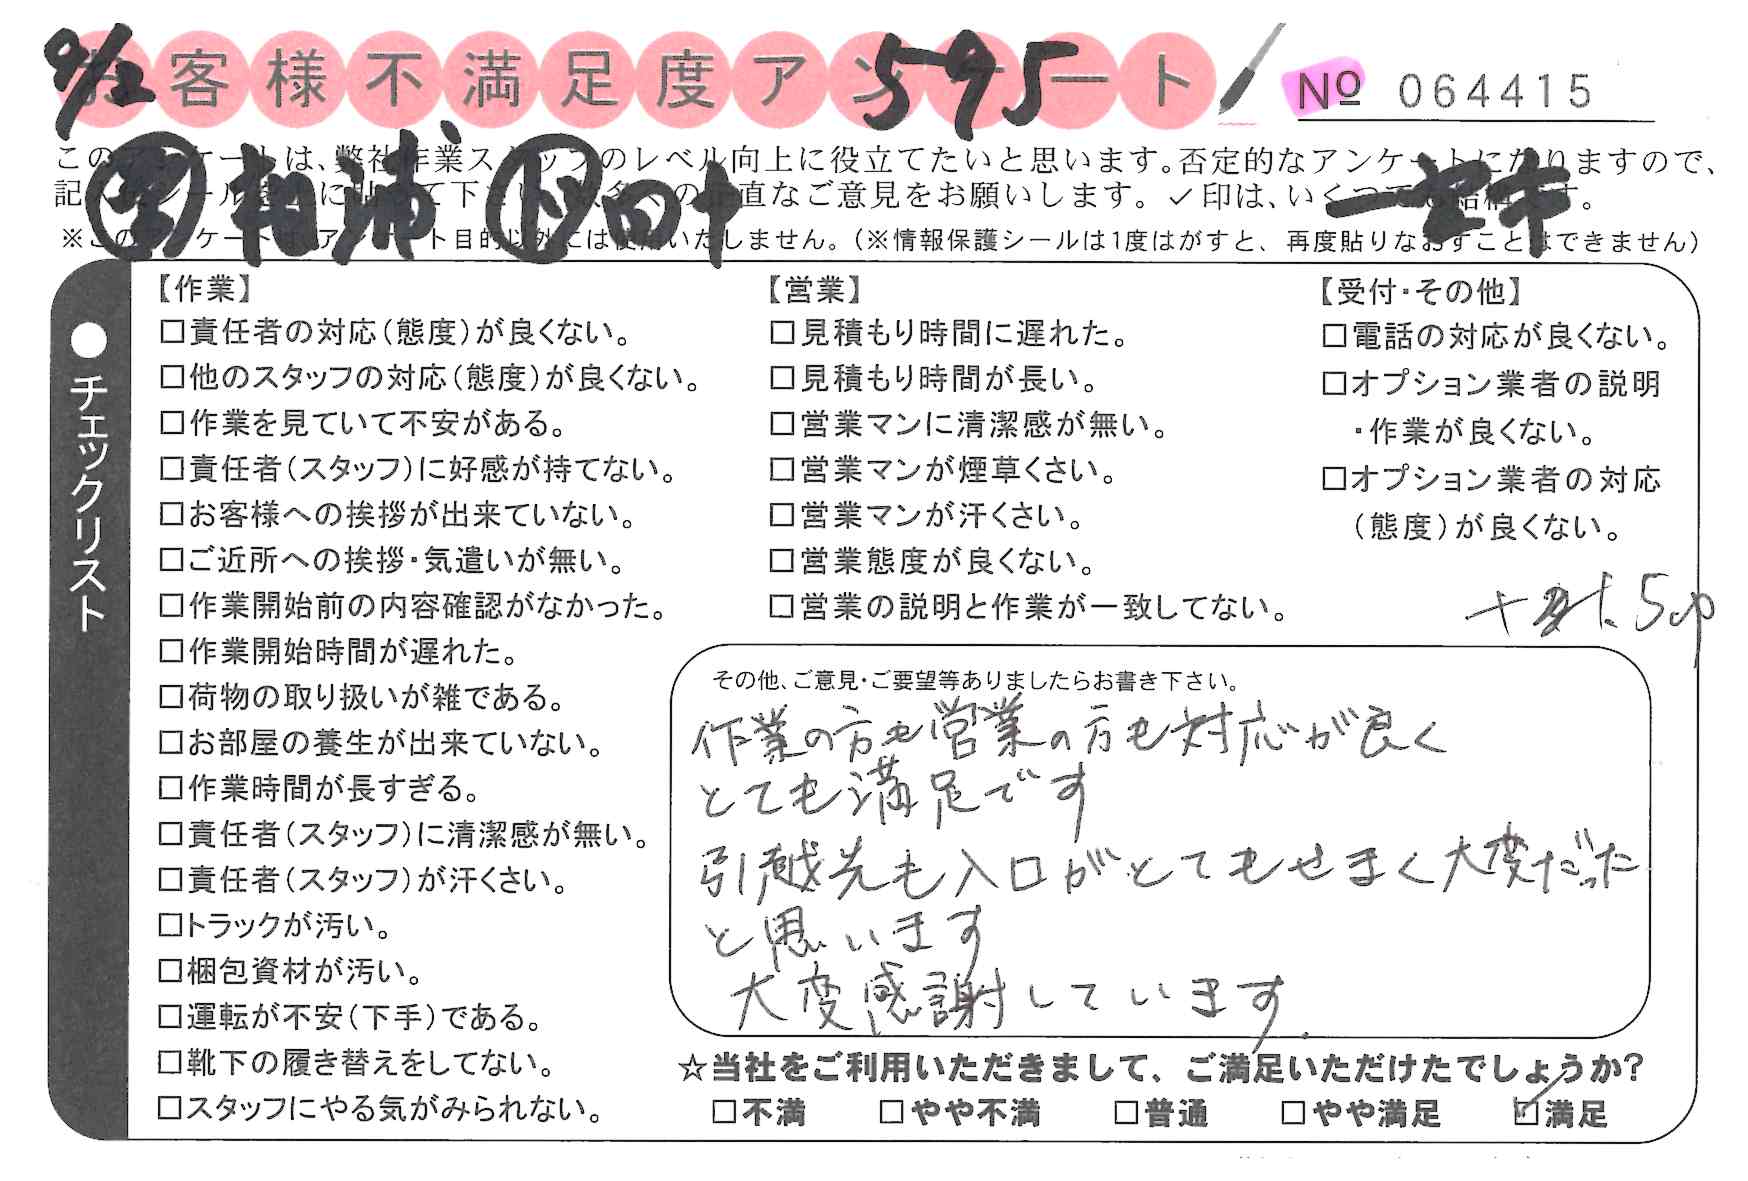 9/2 595
お客様不満足度アンケート
№ 064415
このアンケートは、弊社作業スタッフのレベル向上に役立てたいと思います。否定的なアンケートになりますので、
記入後シールを上に貼って下さい。数多くの正直なご意見をお願いします。✓印は、いくつでも結構です。
※このアンケートは、アンケート目的以外には使用いたしません。(※情報保護シールは1度はがすと、再度貼りなおすことはできません)
相浦
●チェックリスト
【作業】
□責任者の対応(態度)が良くない。
□他のスタッフの対応(態度)が良くない。
□作業を見ていて不安がある。
□責任者(スタッフ)に好感が持てない。
□お客様への挨拶が出来ていない。
□ご近所への挨拶・気遣いが無い。
□作業開始前の内容確認がなかった。
□作業開始時間が遅れた。
□荷物の取り扱いが雑である。
□お部屋の養生が出来ていない。
□作業時間が長すぎる。
□責任者(スタッフ)に清潔感が無い。
□責任者(スタッフ)が汗くさい。
□トラックが汚い。
□梱包資材が汚い。
□運転が不安(下手)である。
□靴下の履き替えをしてない。
□スタッフにやる気がみられない。
【営業】
□見積もり時間に遅れた。
□見積もり時間が長い。
□営業マンに清潔感が無い。
□営業マンが煙草くさい。
□営業マンが汗くさい。
□営業態度が良くない。
□営業の説明と作業が一致してない。
【受付・その他】
□電話の対応が良くない。
□オプション業者の説明
・作業が良くない。
□オプション業者の対応
(態度)が良くない。
その他、ご意見・ご要望等ありましたらお書き下さい。
作業の方も営業の方も対応が良く
とても満足です
引越先も入口がとてもせまく大変だった
と思います
大変感謝しています.
☆当社をご利用いただきまして、ご満足いただけたでしょうか?
□不満 □やや不満 □普通 □やや満足 ☑満足